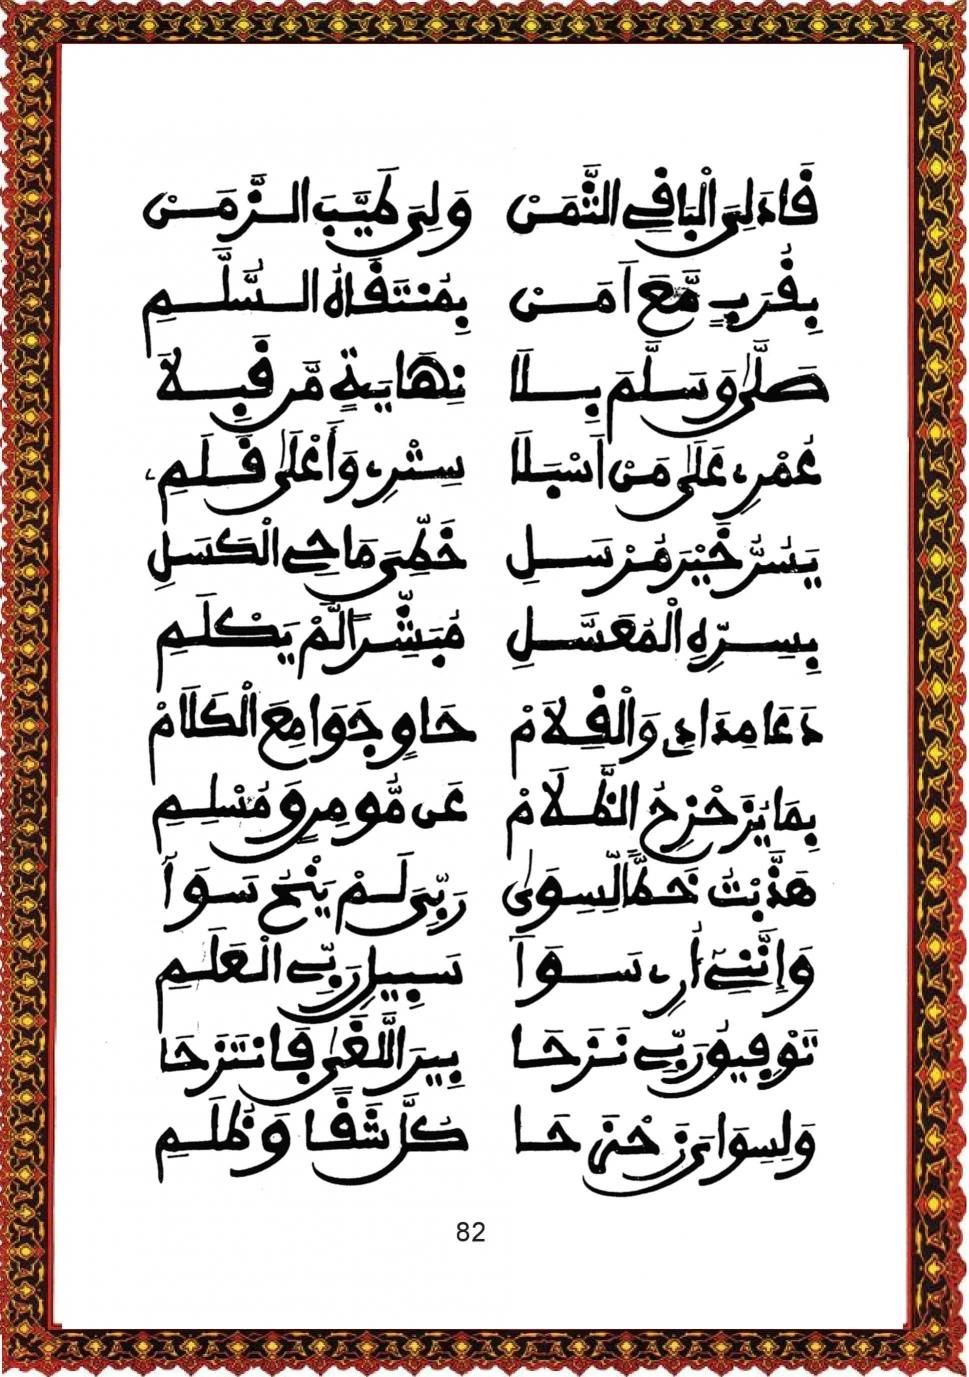 قَادَ لِيَ الْبَاقِي الثَّمَنْ وَلِيَ طَيَّبَ الزَّمَنْ
بِقُرْبٍ مَّعَ أَمَنْ بِمُنْتَقَاهُ السُّلَّمِ
صَلَّى وَسَلَّمَ بِلَا نِهَايَةٍ مَّن قَبِلَا
عُمْرِي عَلَى مَنْ أَسْبَلَا سِتْرِي وَأَعْلَى قَلَمِي
يَسُرُّ خَيْرَ مُرْسَلِ خَطِّيَ مَاحِي الْكَسَلِ
بِسِرِّهِ الْمُعَسَّلِ مُبَشِّرًا لَّمْ يَكْلَمِ
دَعَا مِدَادِي وَالْقِلَامْ حَاوِي جَوَامِعَ الْكَلَامْ
بِمَا يُزَحْزِحُ الظَّلَامْ عَن مُّومِنٍ وَمُسْلِمِ
هَذَّبْتُ خَطًّا لِّسِوَى رَبِّيَ لَمْ يَنْحُ سَوَآ
وَإِنَّنِي أُرِي سَوَآ سَبِيلِ رَبِّي الْعَلَمِ
تَوْفِيقُ رَبِّي نَزَحَا بَيْنَ اللَّغَى فَانْتَزَحَا
وَلِسِوَايَ زَحْزَحَا كُلَّ شَقًا وَظُلَمِ
82